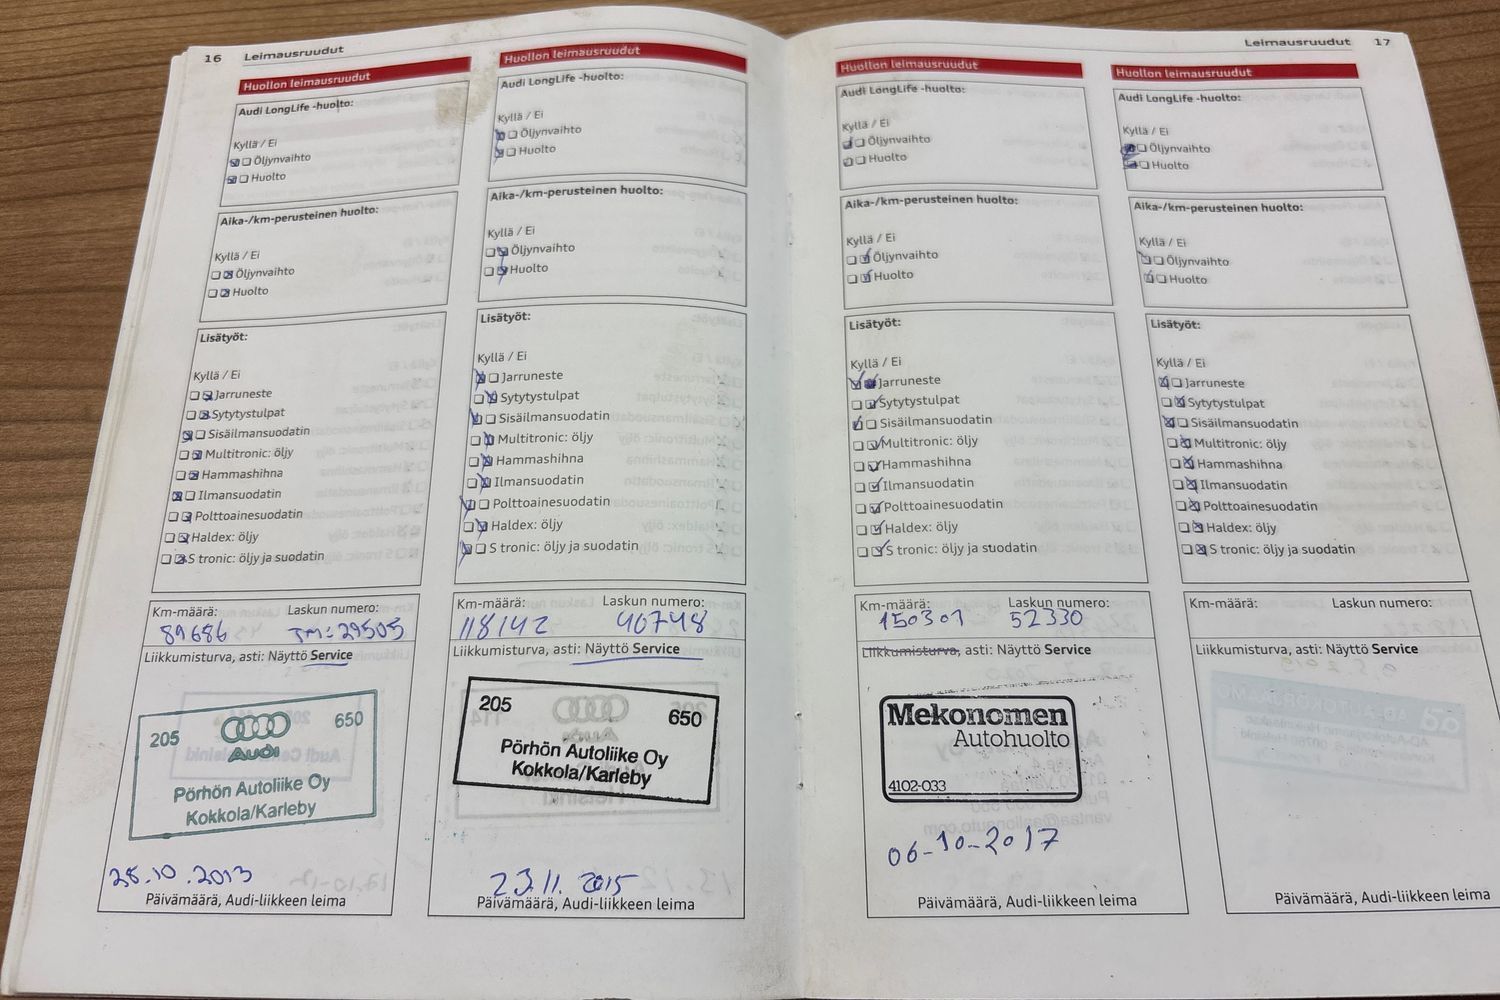 16 Leimausruudut
Huollon leimausruudut
Audi LongLife -huolto:
Kyllä / Ei
Öljynvaihto
Huolto
Aika-/km-perusteinen huolto:
Kyllä / Ei
Öljynvaihto
Huolto
Lisätyöt:
Kyllä / Ei
Jarruneste
Sytytystulpat
Sisäilmansuodatin
Multitronic: öljy
Hammashihna
Ilmansuodatin
Polttoainesuodatin
Haldex: öljy
S tronic: öljy ja suodatin
Km-määrä: Laskun numero:
89686 TM: 29505
Liikkumisturva, asti: Näyttö Service
205 650
Audi
Pörhön Autoliike Oy
Kokkola/Karleby
28.10.2013
Päivämäärä, Audi-liikkeen leima
Huollon leimausruudut
Audi LongLife -huolto:
Kyllä / Ei
Öljynvaihto
Huolto
Aika-/km-perusteinen huolto:
Kyllä / Ei
Öljynvaihto
Huolto
Lisätyöt:
Kyllä / Ei
Jarruneste
Sytytystulpat
Sisäilmansuodatin
Multitronic: öljy
Hammashihna
Ilmansuodatin
Polttoainesuodatin
Haldex: öljy
S tronic: öljy ja suodatin
Km-määrä: Laskun numero:
118142 40748
Liikkumisturva, asti: Näyttö Service
205 650
Pörhön Autoliike Oy
Kokkola/Karleby
23.11.2015
Päivämäärä, Audi-liikkeen leima
Leimausruudut 17
Huollon leimausruudut
Audi LongLife -huolto:
Kyllä / Ei
Öljynvaihto
Huolto
Aika-/km-perusteinen huolto:
Kyllä / Ei
Öljynvaihto
Huolto
Lisätyöt:
Kyllä / Ei
Jarruneste
Sytytystulpat
Sisäilmansuodatin
Multitronic: öljy
Hammashihna
Ilmansuodatin
Polttoainesuodatin
Haldex: öljy
S tronic: öljy ja suodatin
Km-määrä: Laskun numero:
150301 52330
Liikkumisturva, asti: Näyttö Service
Mekonomen
Autohuolto
4102-033
06-10-2017
Päivämäärä, Audi-liikkeen leima
Huollon leimausruudut
Audi LongLife -huolto:
Kyllä / Ei
Öljynvaihto
Huolto
Aika-/km-perusteinen huolto:
Kyllä / Ei
Öljynvaihto
Huolto
Lisätyöt:
Kyllä / Ei
Jarruneste
Sytytystulpat
Sisäilmansuodatin
Multitronic: öljy
Hammashihna
Ilmansuodatin
Polttoainesuodatin
Haldex: öljy
S tronic: öljy ja suodatin
Km-määrä: Laskun numero:
Liikkumisturva, asti: Näyttö Service
Päivämäärä, Audi-liikkeen leima